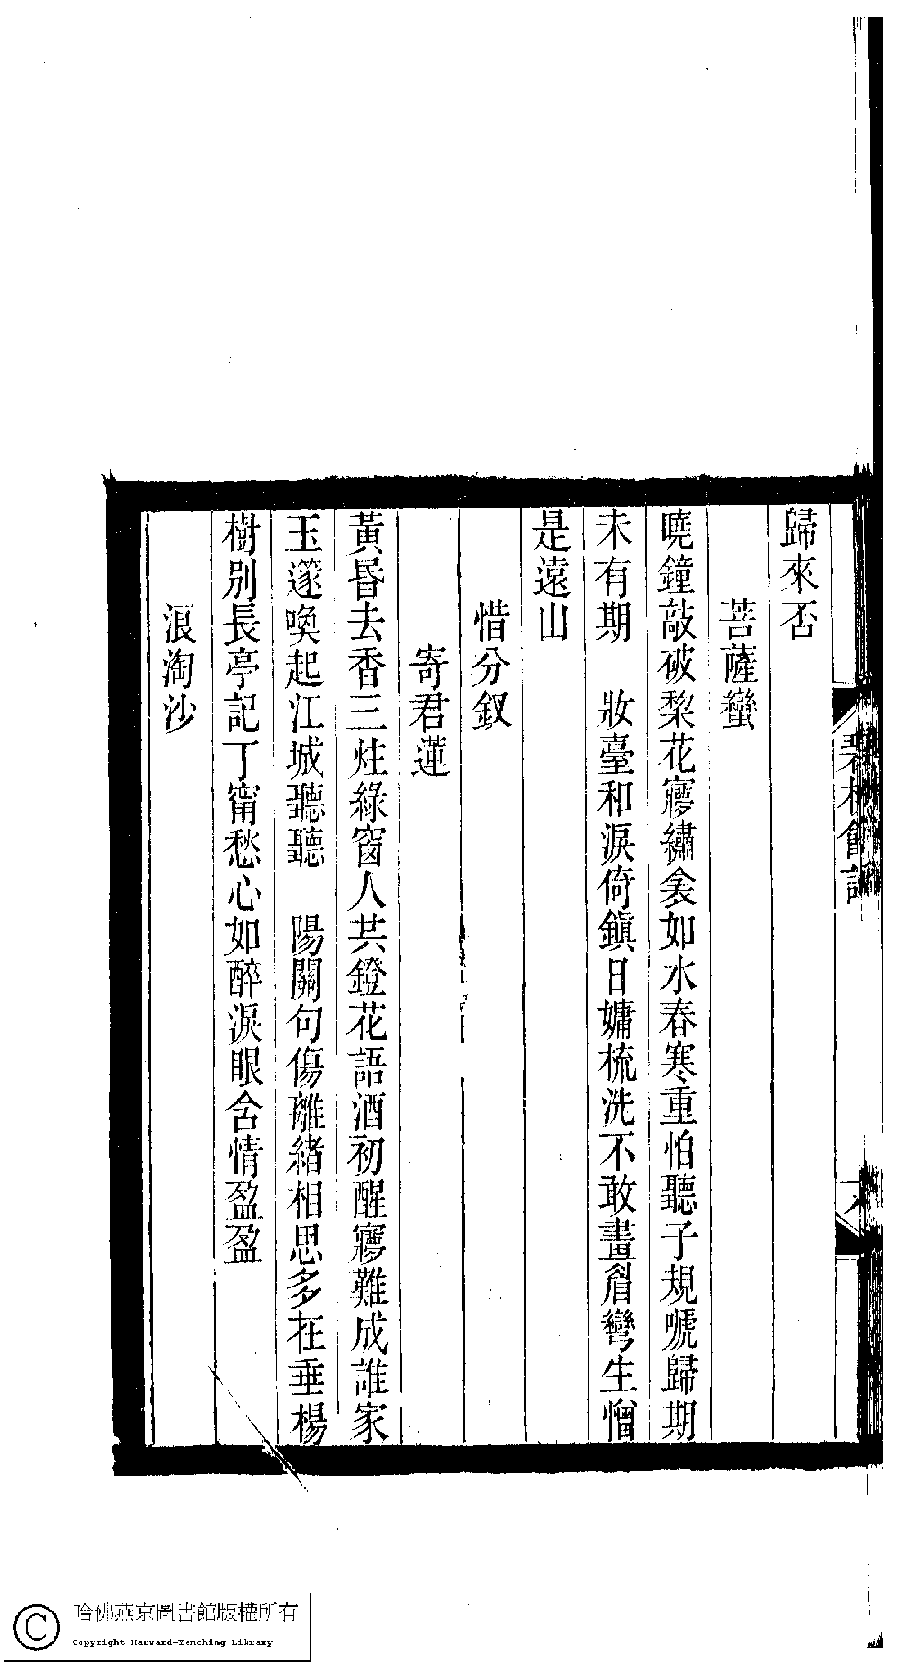 歸來否
菩薩蠻
曉鐘敲破棃花㝱繡衾如水春寒重怕聽子規嗁歸期
未有期　妝臺和淚倚鎮日慵梳洗不敢畫眉彎生憎
是遠山
惜分釵
寄君蓮
黃昏去香三炷綠窗人共鐙花語酒初醒㝱難成誰家
玉邃喚起江城聽聽　陽關句傷離緒相思多在垂楊
樹別長亭記丁甯愁心如醉淚眼含情盈盈
浪淘沙
哈佛燕京圖書館版權所有
Copyright Harvard-Yenching Library